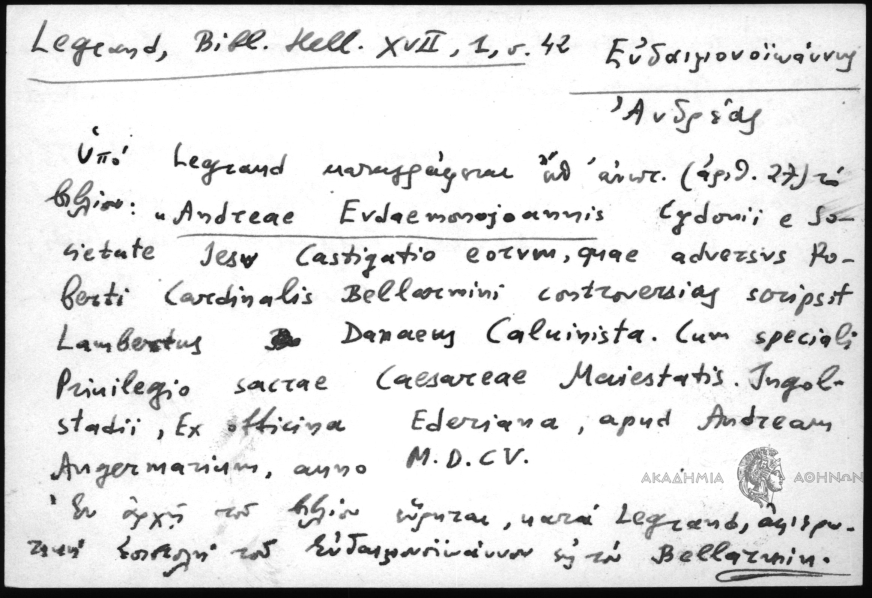 Legrand, Bibl. Hell. XVII, 1, σ. 42
Εὐδαιμονοϊωάννης
Ἀνδρέας
Ὑπὸ Legrand καταγράφεται ὑπ' ἀριθ. (ἀριθ. 27) τὸ
βιβλίον: "Andreae Evdaemonojoannis Cydonii e So-
cietate Jesv Castigatio eorvm, quae adversvs Ro-
berti Cardinalis Bellarmini controversias scripsit
Lambertus Danaeus Caluinista. Cum speciali
Priuilegio sacrae Caesareae Maiestatis. Ingol-
stadii, Ex officina Ederiana, apud Andream
Angermarium, anno M.D.CV.
ΑΚΑΔΗΜΙΑ ΑΘΗΝΩΝ
Ἐν ἀρχῇ τοῦ βιβλίου εὕρηται, κατὰ Legrand, ἀφιερω-
τικὴ ἐπιστολὴ τοῦ Εὐδαιμονοϊωάννου εἰς τὸν Bellarmin.